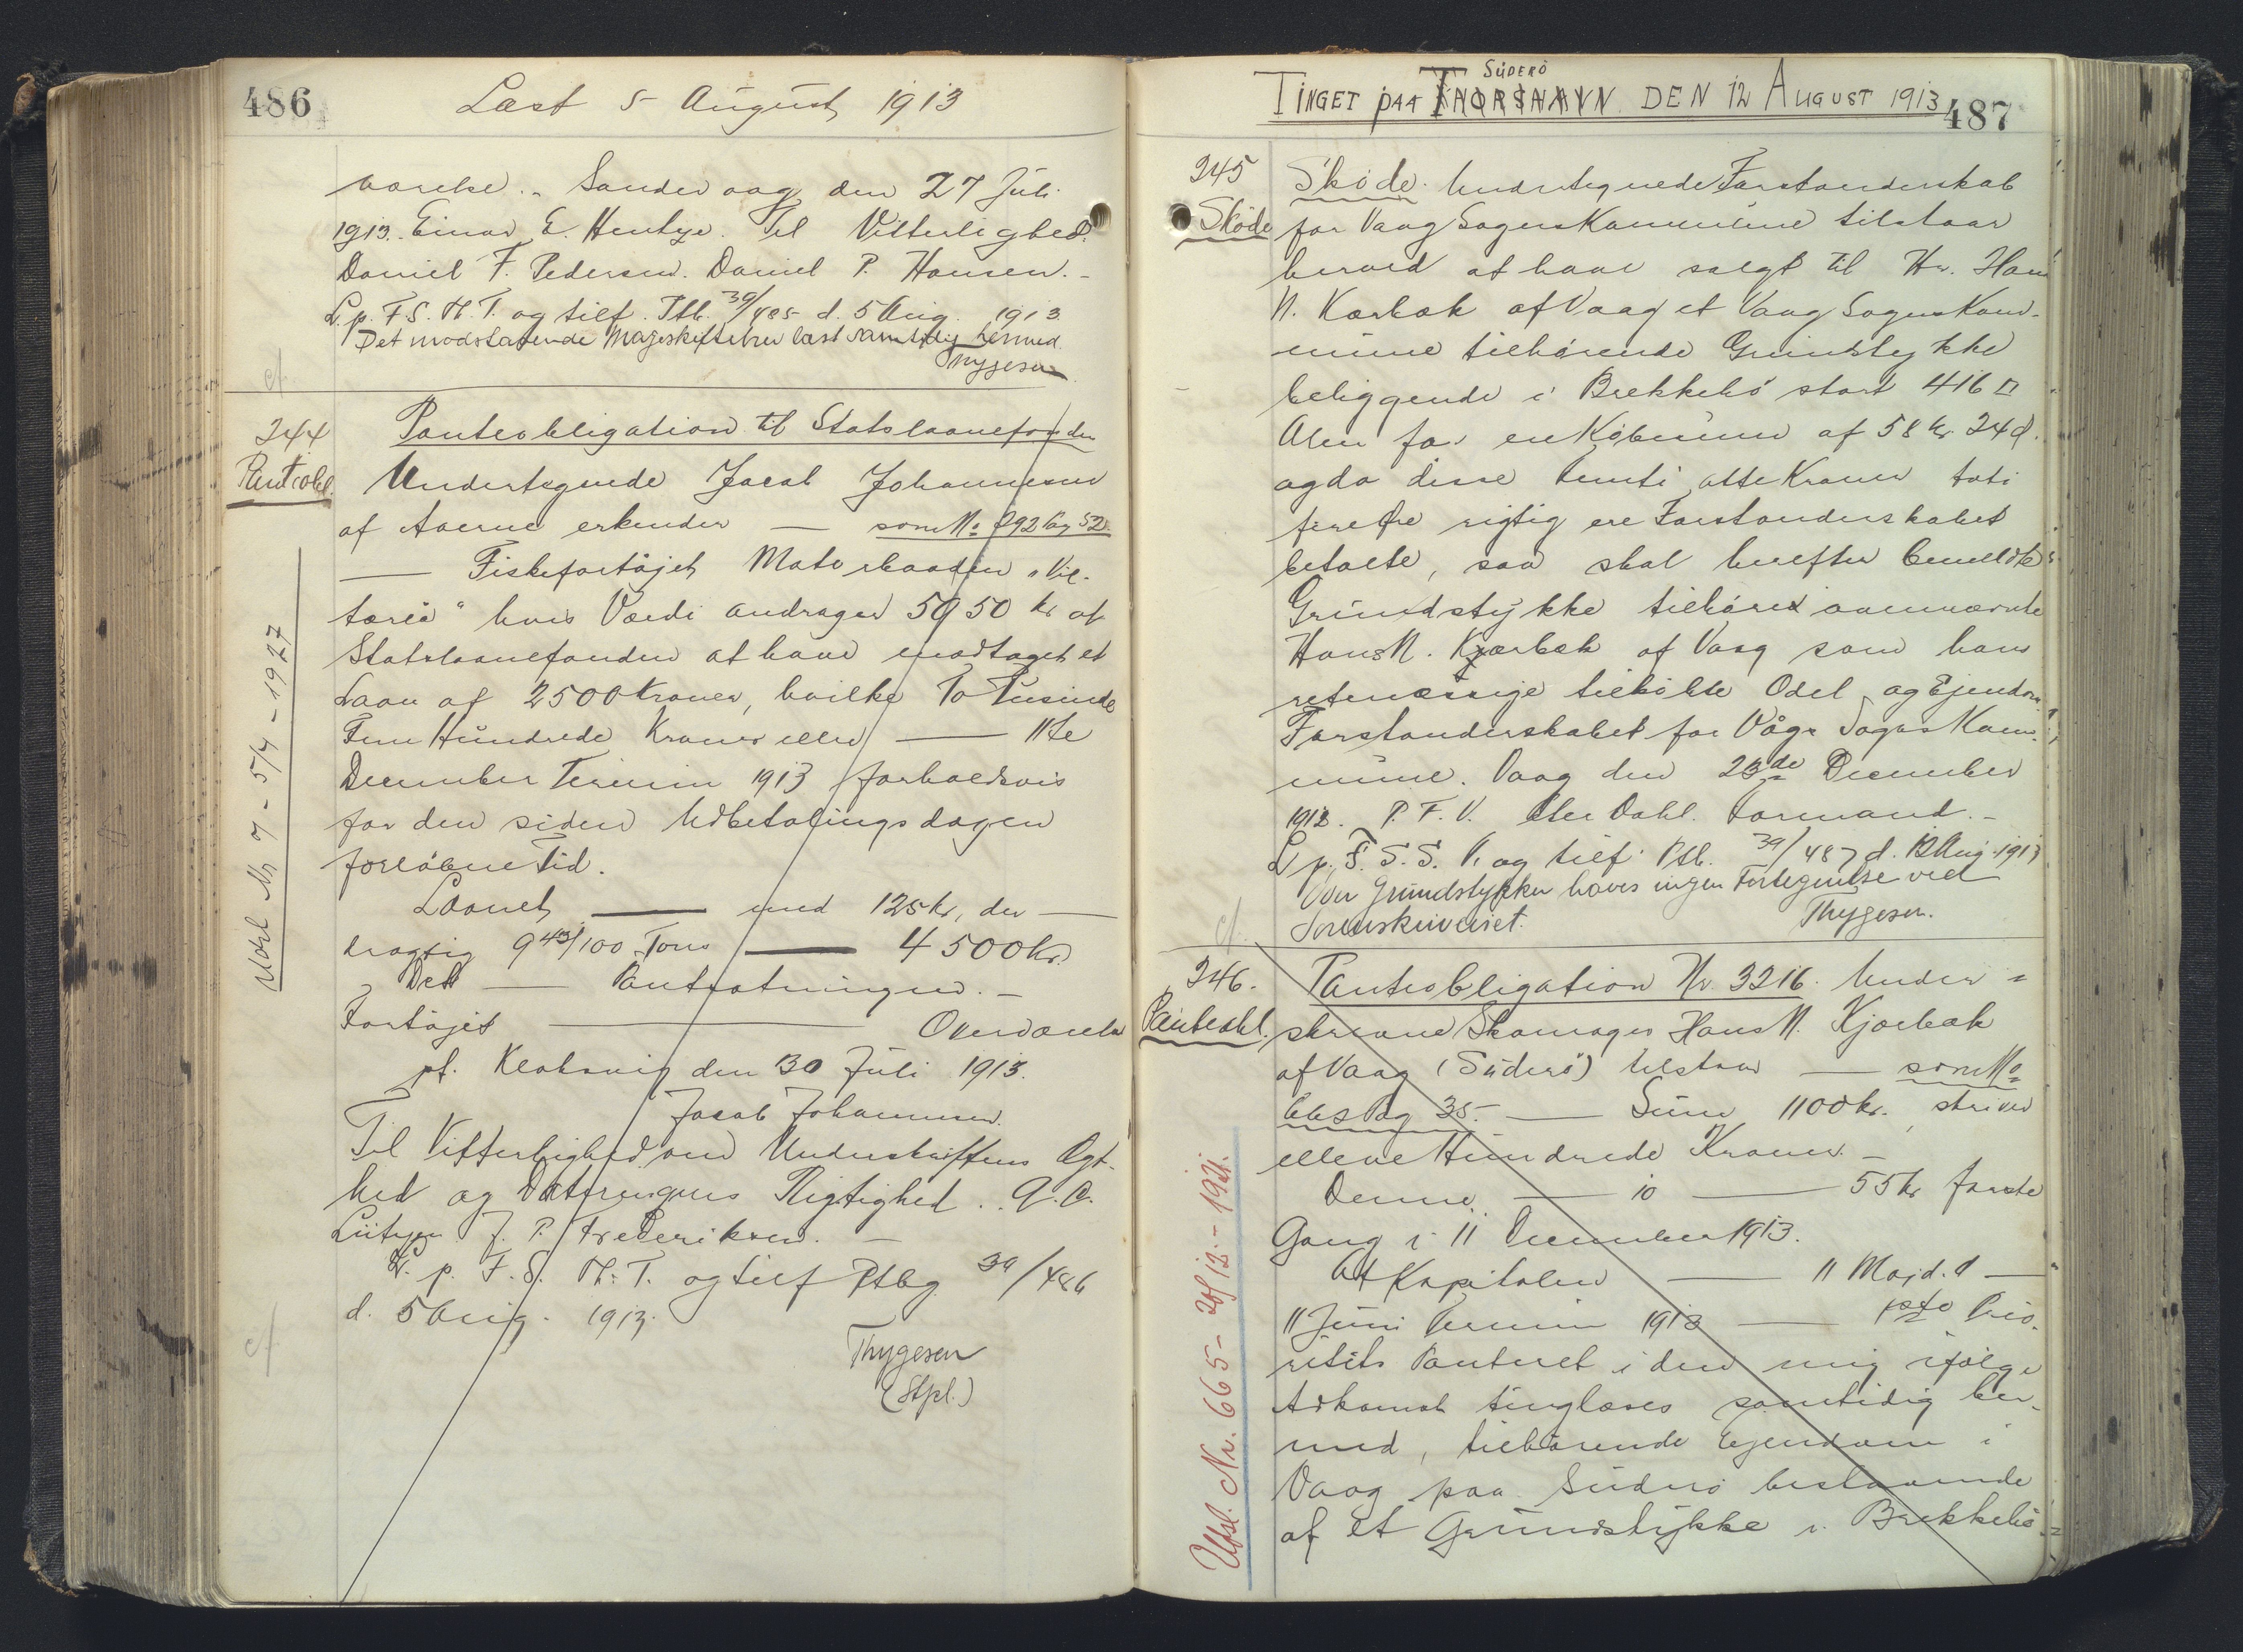 486
Læst 5 August 1913
værelse. - Sandevaag den 27 Juli
1913. Einar E. Hentze. Til Vitterlighed.
Daniel F. Pedersen. Daniel P. Hansen. -
L. p. F. S. Th. T. og tilf. Ptb. 39/485 d. 5 Aug. 1913
Det modstaaende Mageskiftebrev læst samtidig hermed
Thygesen
cf.
244
Pantobl.
Panteobligation til Statslaanefonden
Undertegnede Jacob Johannesen
af erkender — som No 892 Pag 52
— Fiskefartøjet Motorbaaden "Vik-
toria" hvis Værdi andrager 5050 kr af
Statslaanefonden at have modtaget et
Laan af 2500 Kroner, hvilke To Tusinde
Fem Hundrede Kroner eller — 11te
December Termin 1913 forholdsvis
for den siden Udbetalingsdagen
forløbne Tid.
Laanet — med 125 kr, der —
drægtig 9 43/100 Tons — 4500 kr.
Det — Pantsætningen. -
Fartøjet — Overværelse
pt. Klaksvig den 30 Juli 1913.
Jacob Johannesen.
Til Vitterlighed om Underskriftens Ægt-
hed og Dateringens Rigtighed.
Lützen J. P. Frederiksen. -
L. p. F. S. Th. T. og tilf Ptbg 39/486
d. 5 Aug. 1913.
Thygesen
(Stpl.)
cf.
Udsl Nr 7 - 5/4 - 1927
TINGET PAA THORSHAVN SÜDERÖ DEN 12 AUGUST 1913
487
245
Sköde
Sköde. Undertegnede Forstanderskab
for Vaag Sogns Kommune tilstaar
herved at have solgt til Hr. Hans
M. Kærbæk af Vaag et Vaag Sogns Kom-
mune tilhørende Grundstykke
beliggende i Brekkebø stort 416 □
Alen for en Købesum af 58 Kr. 24 Ø.
og da disse femti otte Kroner toti
fire Øre rigtig ere Forstanderskabet
betalte, saa skal herefter bemeldte
Grundstykke tilhøre ovennævnte
Hans M. Kjærbæk af Vaag som hans
retmæssige tilkøbte Odel og Ejendom.
Forstanderskabet for Vågs Sogns Kom-
mune. Vaag den 23de December
1912. P. F. V. Peter Dahl. Formand. -
L. p. F. S. S. V. og tilf. Ptb. 39/487 d. 12 Aug. 1913
Over Grundstykker haves ingen Fortegnelse ved
Sorenskriveriet. Thygesen.
cf.
246.
Panteobl.
Panteobligation Nr. 3216. Under=
skrevne Skomager Hans M. Kjærbæk
af Vaag (Süderø) tilstaar — som No
Pag 35. — Sum 1100 kr. skriver
elleve Hundrede Kroner. -
Denne — io — 55 kr første
Gang i 11 December 1913.
At Kapitalen — 11 Maj d. A —
11 Juni Termin 1913 — 1ste Prio-
ritets Panteret i den mig ifølge
Adkomst tinglæses samtidig her-
med, tilhørende Ejendom i
Vaag paa Süderø bestaaende
af et Grundstykke i Brekkebø
Udsl. Nr. 665 - 20/12. - 1921.